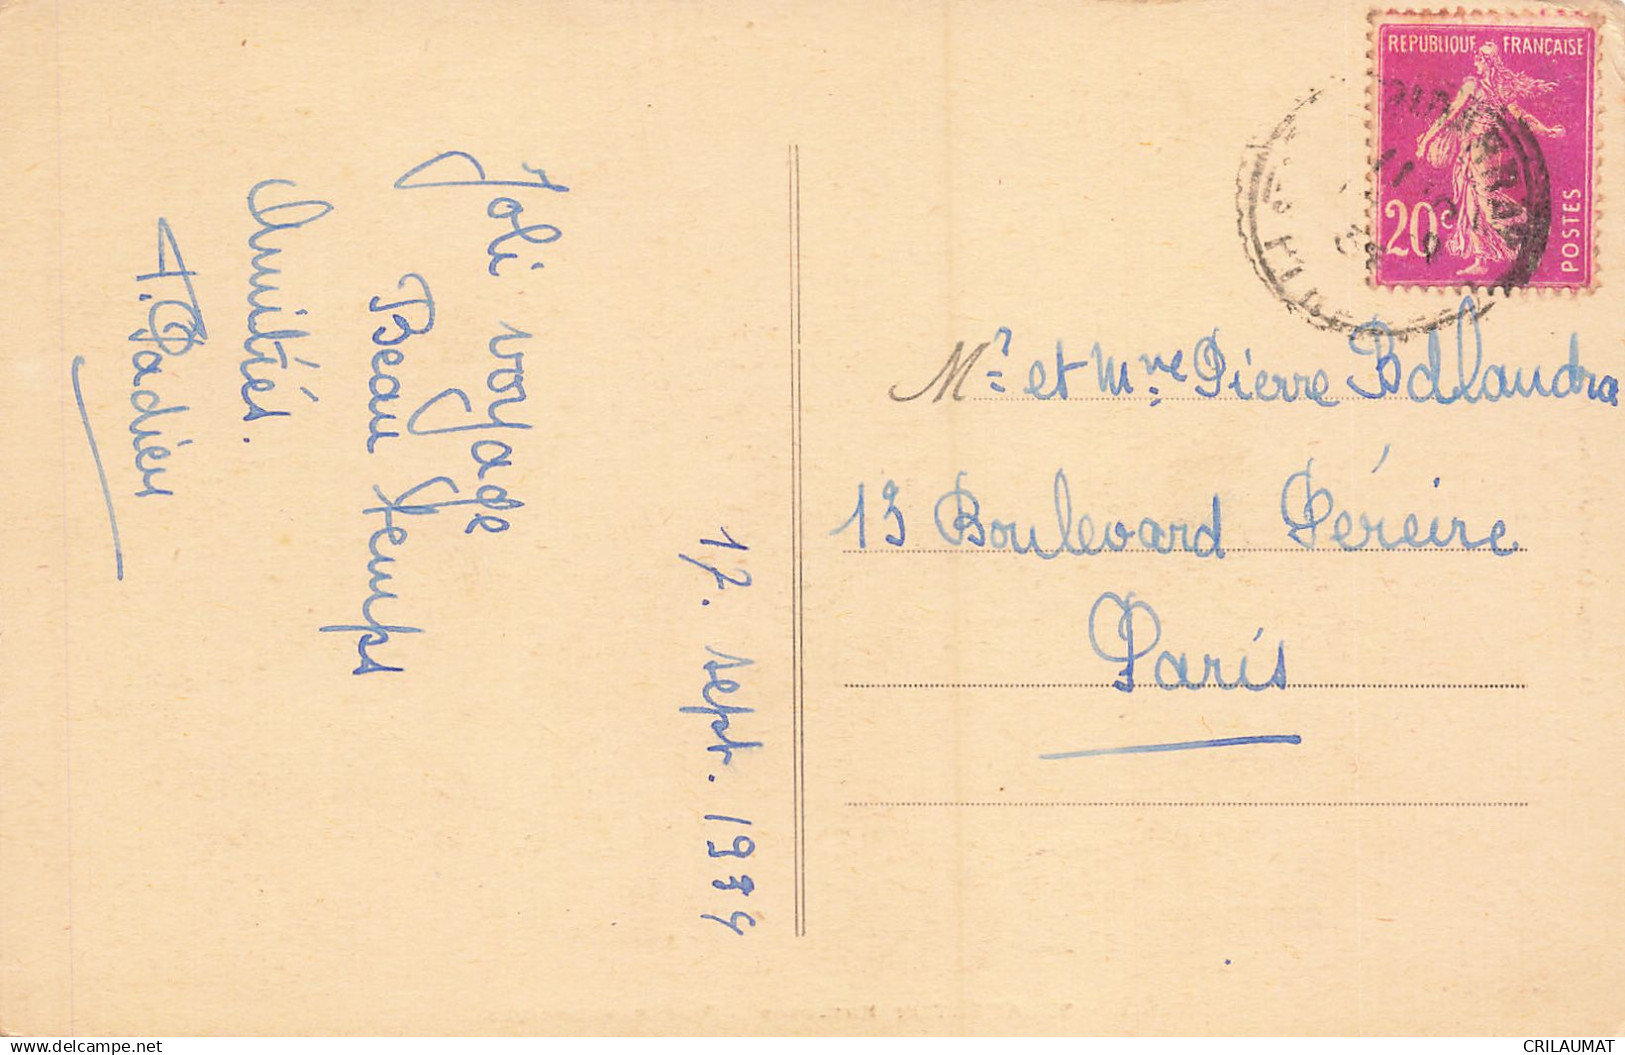 Joli voyage
Beau temps
Amitiés.
17. sept. 1934
REPUBLIQUE FRANÇAISE
20c
POSTES
Mr et Mme Pierre
13 Boulevard Péreire
Paris
delcampe.net
CRILAUMAT